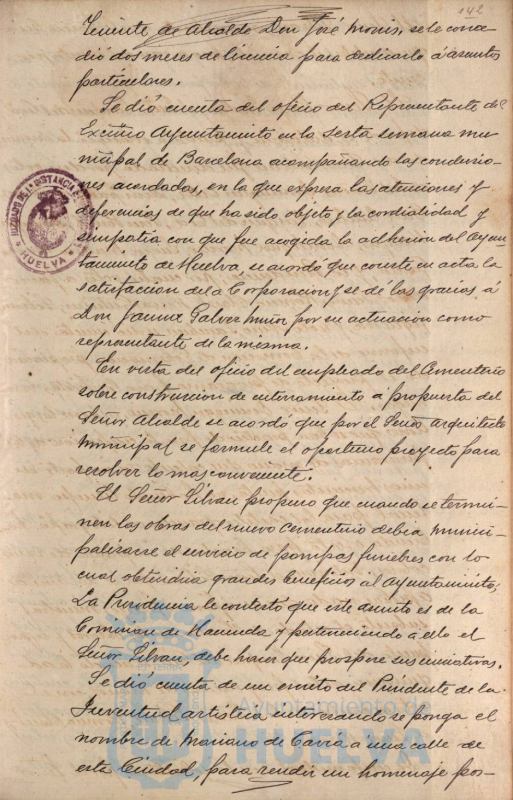 142
Teniente de Alcalde Don José Monis, se le conce-
dió dos meses de licencia para dedicarlo á asuntos
particulares.
Se dió cuenta del oficio del Representante del
Excmo Ayuntamiento en la sexta semana mu-
nicipal de Barcelona acompañando las conclusio-
nes acordadas, en la que expresa las atenciones y
deferencias de que ha sido objeto y la cordialidad y
simpatia con que fue acogida la adhesion del Ayun-
tamiento de Huelva, se acordó que conste en acta la
satisfaccion de la Corporacion y se dé las gracias á
Don Jaume Galver Muñoz por su actuacion como
representante de la misma.
En vista del oficio del empleado del Cementerio
sobre construccion de enterramiento á propuesta del
Señor Alcalde se acordó que por el Señor Arquitecto
Municipal se formule el oportuno proyecto para
resolver lo mas conveniente.
El Señor Silvan propuso que cuando se termi-
nen las obras del nuevo cementerio debia munici-
palizarse el servicio de pompas funebres con lo
cual obtendria grandes beneficios al Ayuntamiento;
La Presidencia le contestó que este asunto es de la
Comision de Hacienda y perteneciendo a ella el
Señor Silvan, debe hacer que prospere sus iniciativas.
Se dió cuenta de un escrito del Presidente de la
Juventud artistica interesando se ponga el
nombre de Mariano de Cavia a una calle de
esta Ciudad, para rendir un homenaje pos-
HUELVA
Ayuntamiento de
HUELVA